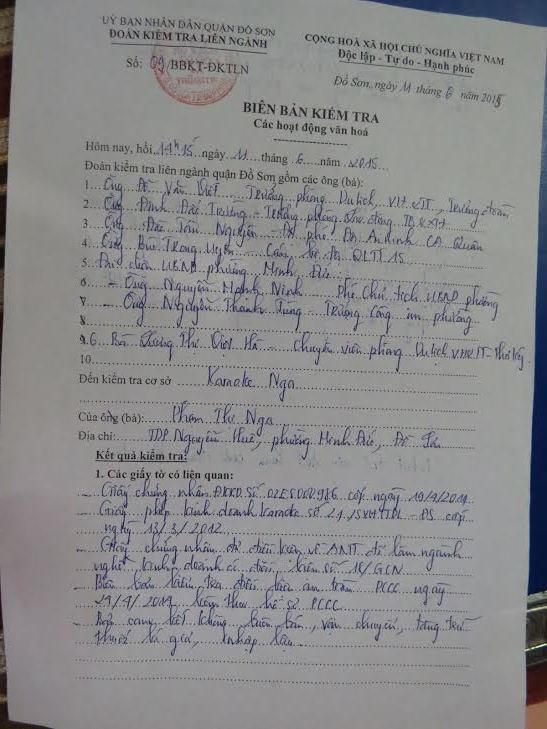 UỶ BAN NHÂN DÂN QUẬN ĐỒ SƠN
ĐOÀN KIỂM TRA LIÊN NGÀNH
Số: 09/BBKT-ĐKTLN
CỘNG HOÀ XÃ HỘI CHỦ NGHĨA VIỆT NAM
Độc lập - Tự do - Hạnh phúc
Đồ Sơn, ngày 11 tháng 6 năm 2015
BIÊN BẢN KIỂM TRA
Các hoạt động văn hoá
Hôm nay, hồi 14h15 ngày 11 tháng 6 năm 2015
Đoàn kiểm tra liên ngành quận Đồ Sơn gồm các ông (bà):
1. Ông Văn Việt Trưởng phòng Du lịch, VH, TT, Trưởng đoàn
2. Ông Đinh Đắc Trường - Trưởng phòng Lao động TB & XH
3. Ông Tân Nguyên - An ninh CA Quận
4. Ông Bùi Trọng Uyên - Cán bộ QLTT 15
5. Đại diện UBND phường Minh Đức
6 - Ông Nguyễn Mạnh Ninh - Phó Chủ tịch UBND phường
7 - Ông Nguyễn Thanh Tùng - Trưởng công an phường
8
9.6 Bà Thị Việt Hà - chuyên viên phòng Du lịch VHTT - Thư ký
10
Đến kiểm tra cơ sở Karaoke Nga
Của ông (bà): Phạm Thị Nga
Địa chỉ: TDP Nguyễn Huệ, phường Minh Đức, Đồ Sơn
Kết quả kiểm tra:
1. Các giấy tờ có liên quan:
- Giấy chứng nhận ĐKKD số 02E5000986 cấp ngày 19/4/2011
- Giấy phép kinh doanh karaoke số 21/SVHTTDL - ĐS cấp
ngày 13/3/2012
- Giấy chứng nhận đủ điều kiện về ANTT để làm ngành
nghề kinh doanh có điều kiện số 16/GCN
- Biên bản kiểm tra điều kiện an toàn PCCC ngày
kiểm tra hồ sơ PCCC
- Bản cam kết không buôn bán, vận chuyển, tàng trữ
thuốc lá giả, nhập lậu